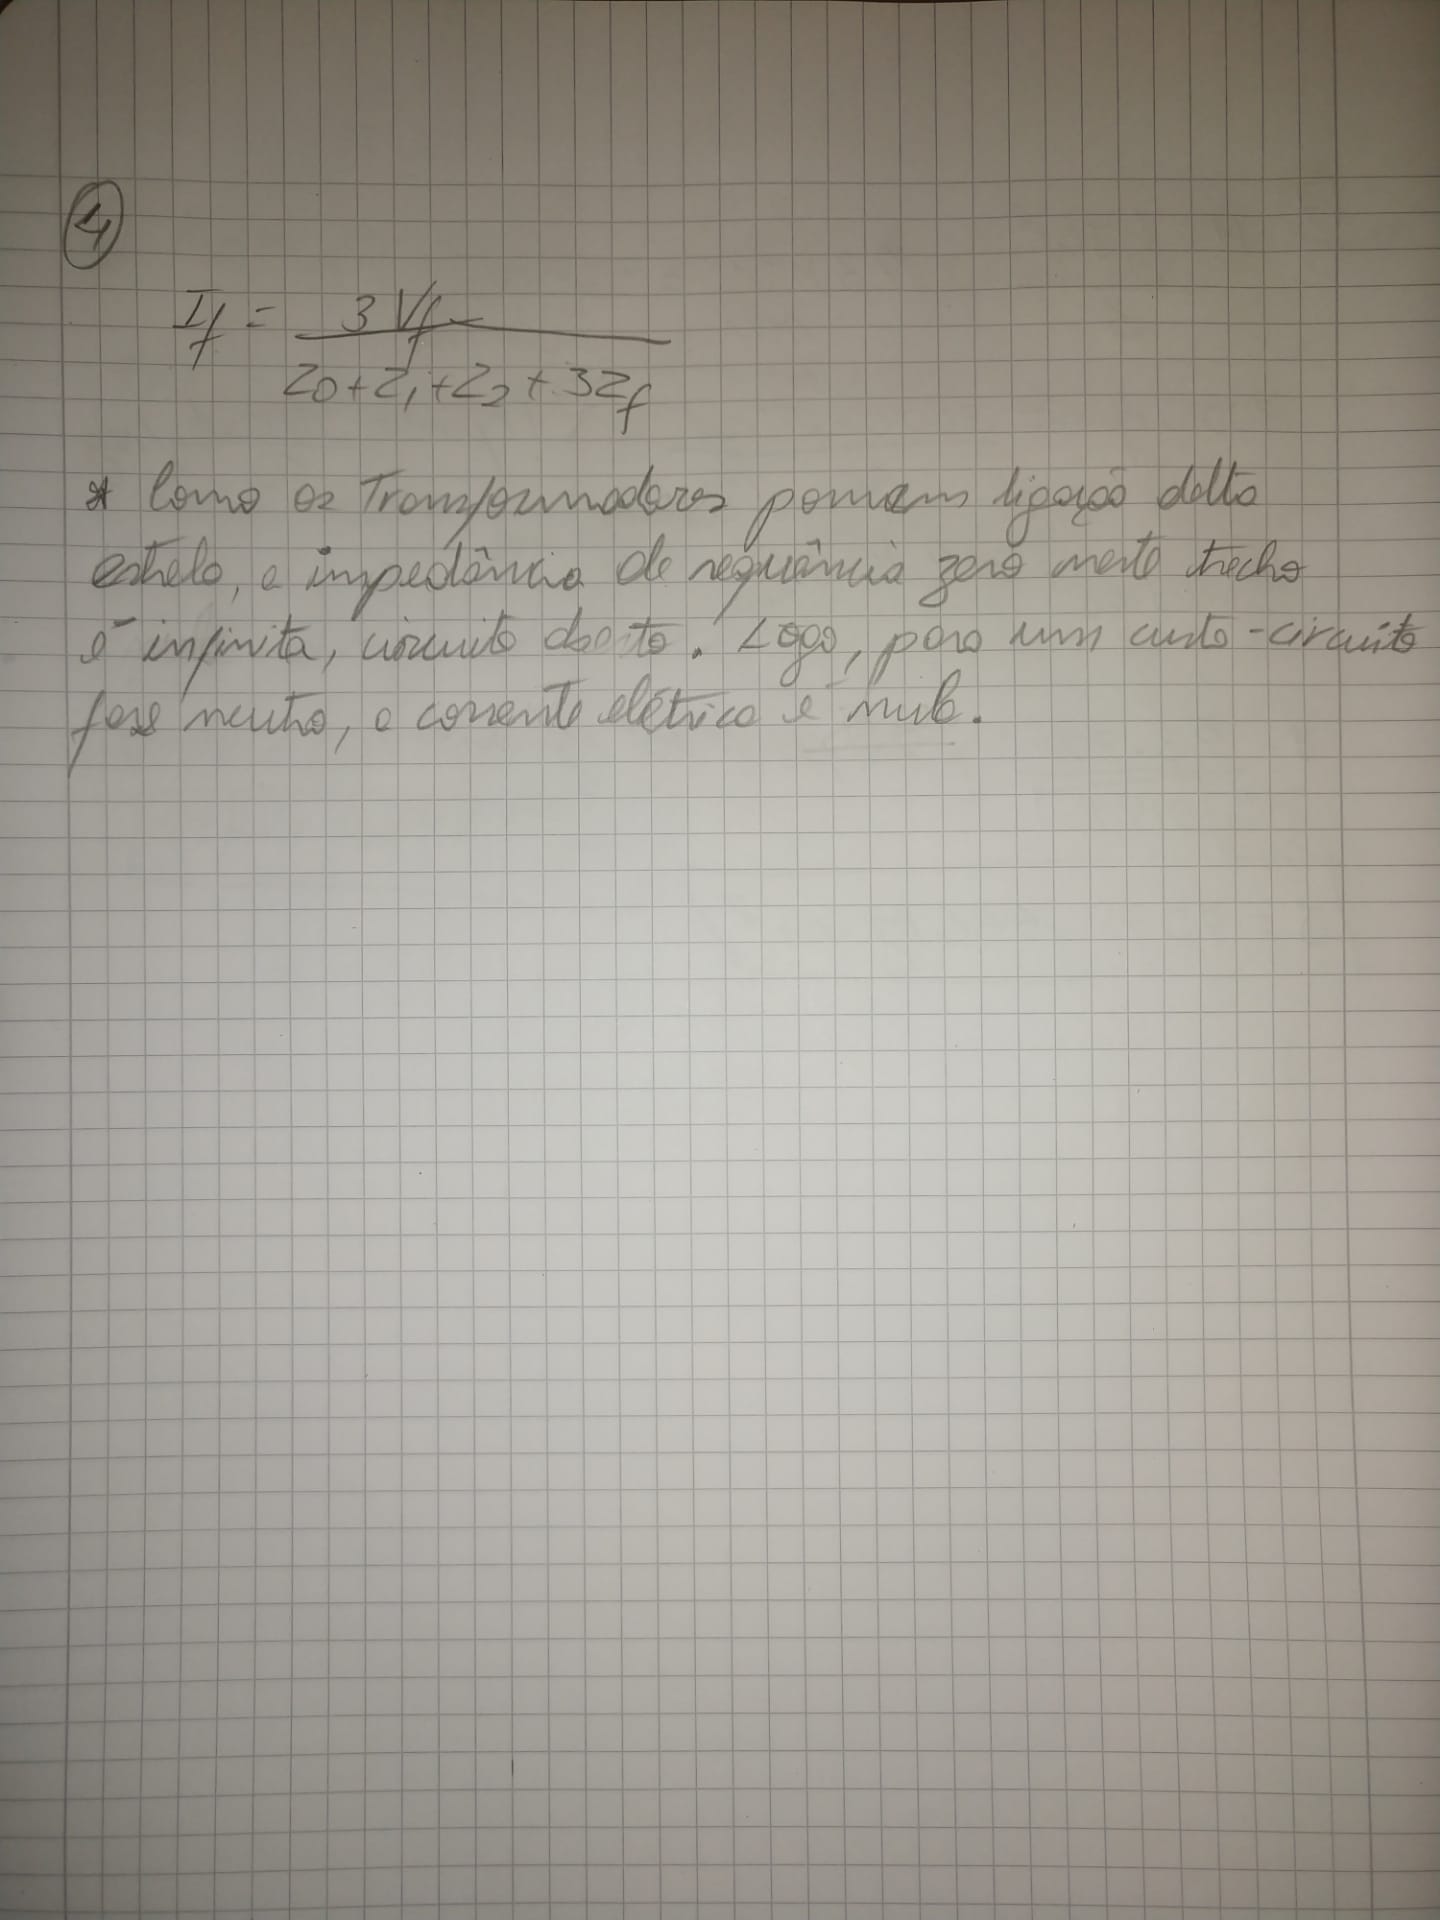 4
If = 3 Vf
Z0 + Z1 + Z2 + 3Zf
* Como os Transformadores possuem ligação delta
estrela, a impedância de sequência zero neste trecho
é infinita, circuito aberto. Logo, para um curto-circuito
fase neutro, a corrente elétrica é nula.